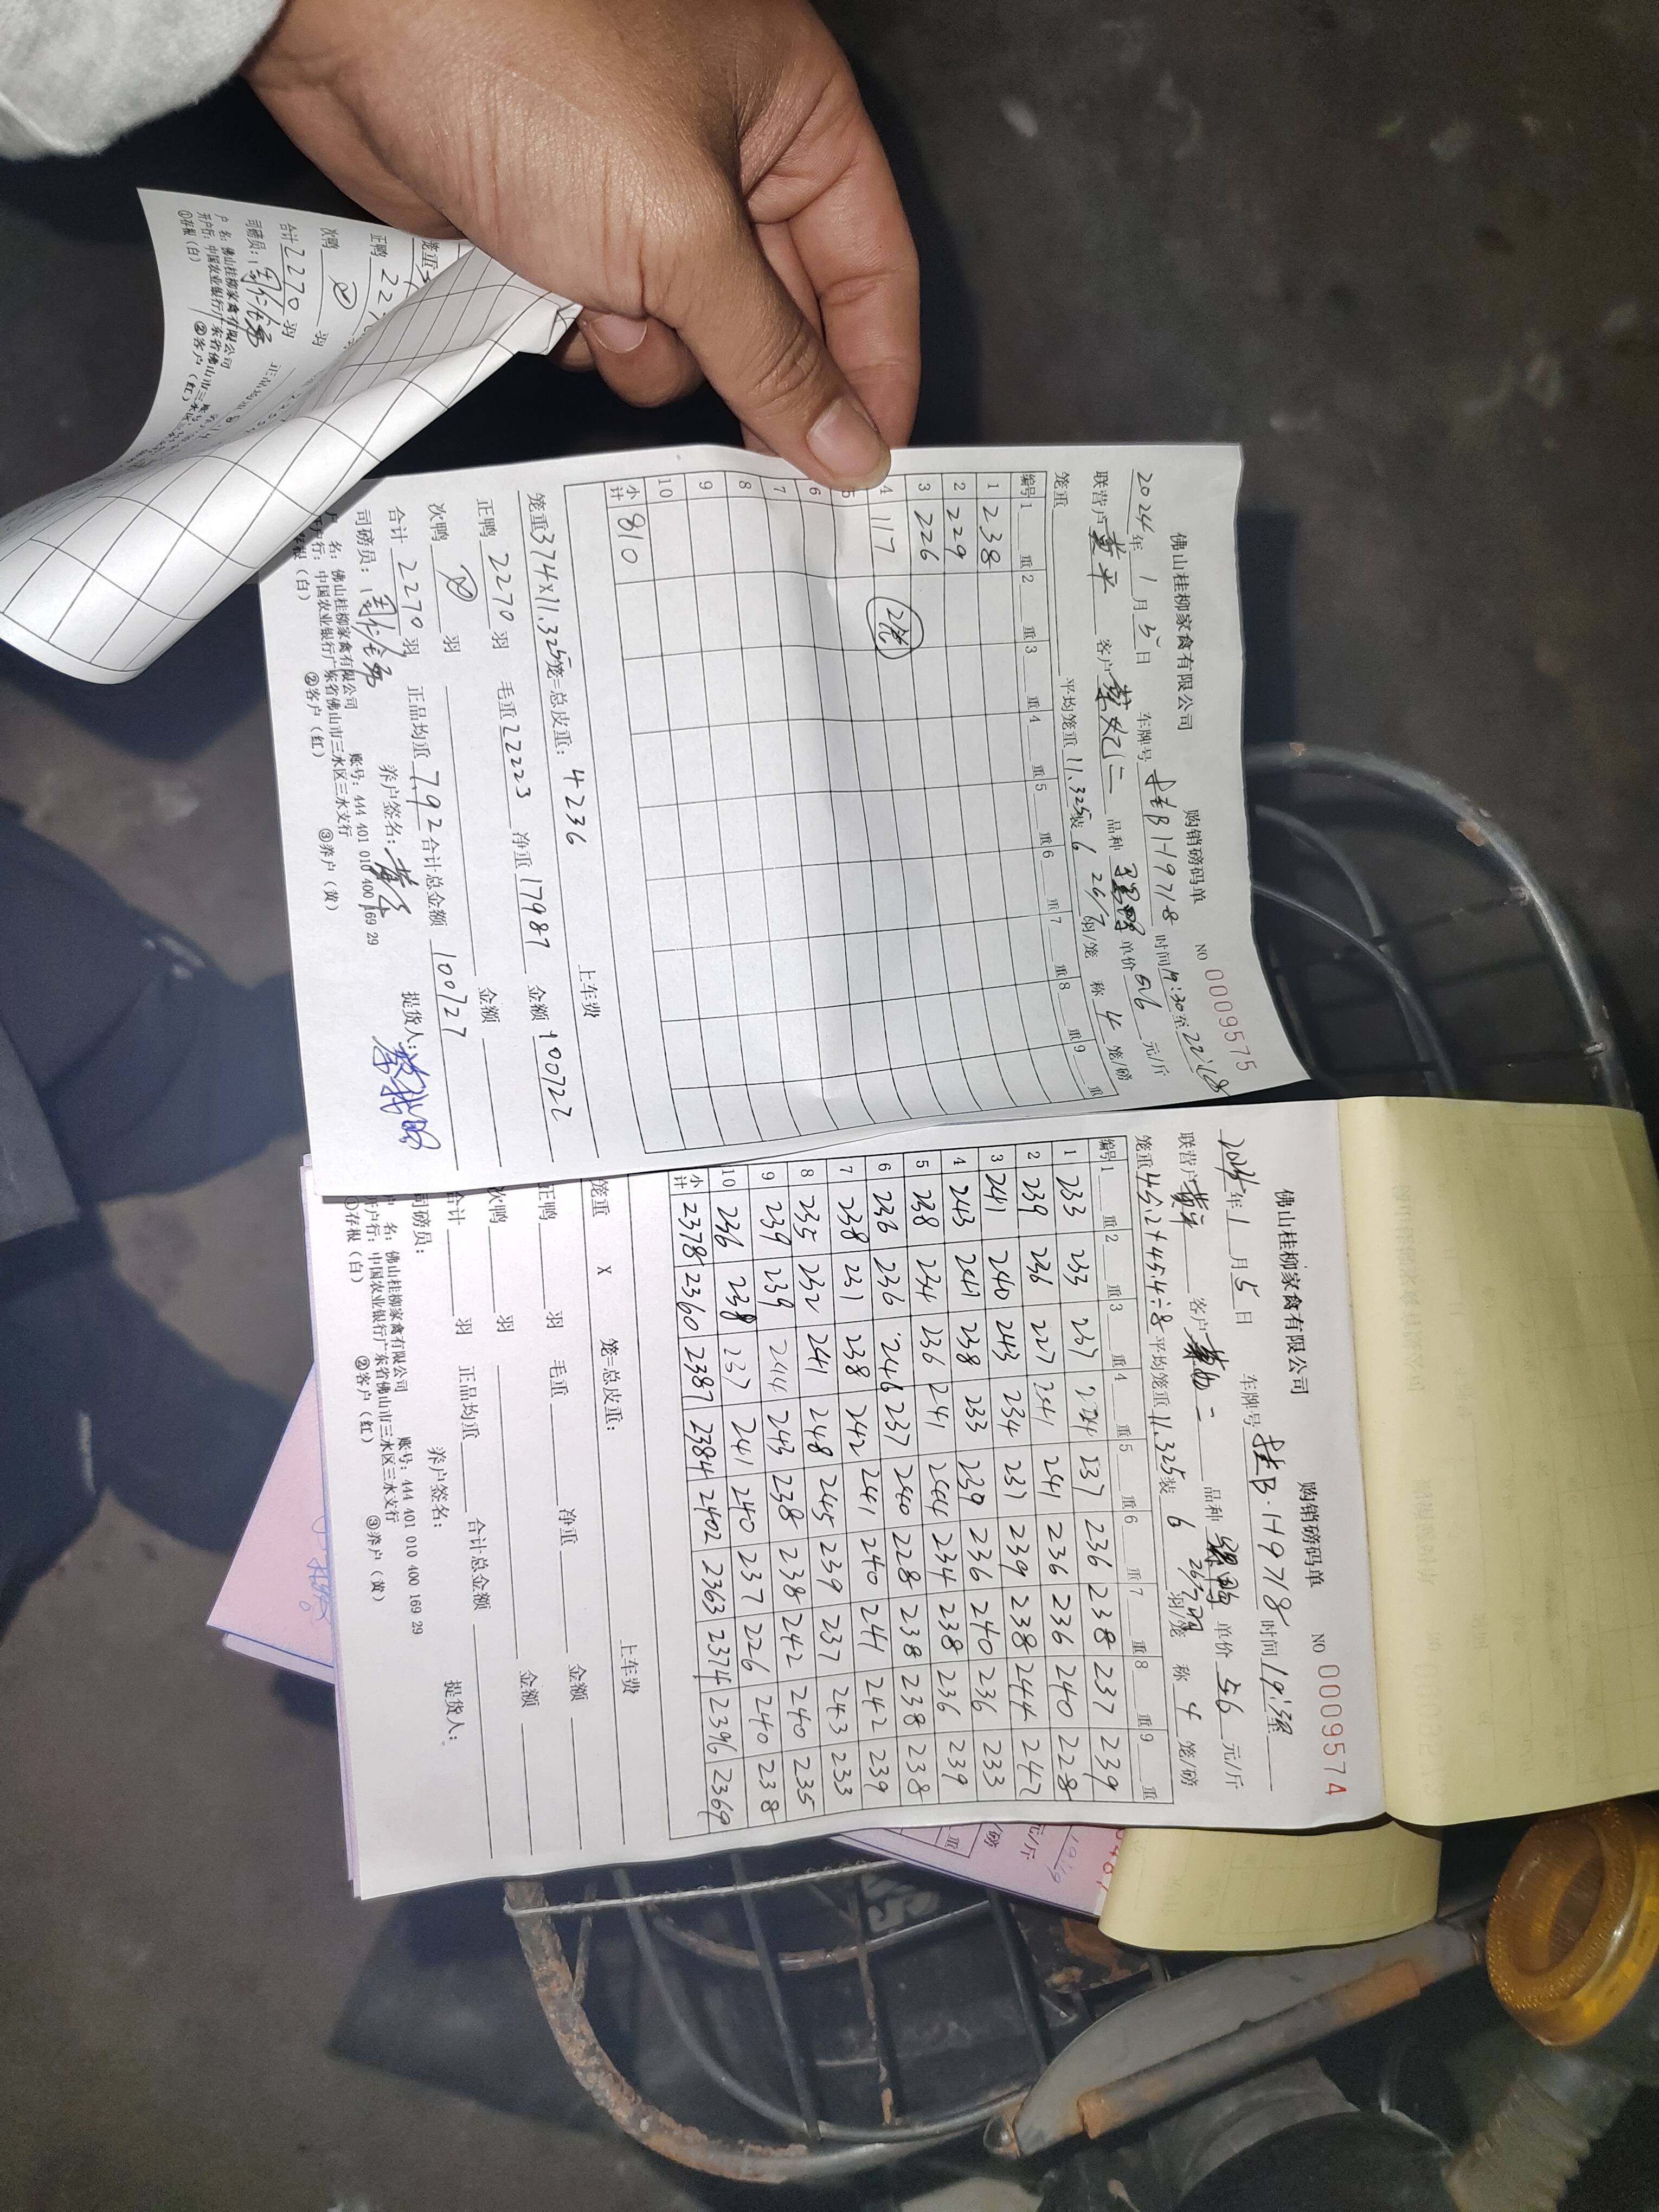 佛山桂柳家禽有限公司 购销磅码单 NO 0009575
2024年 1月 5日 车牌号 桂B·H9718 时间 19:30至22:18
联营户 黄平 客户 二 品种 单价 5.6 元/斤
笼重 平均笼重 11.325 装 6 26/7 羽/笼 称 4 笼/磅
编号 1 重 2 重 3 重 4 重 5 重 6 重 7 重 8 重 9 重
1 238
2 229
3 226
4 117 2笼
5
6
7
8
9
10
小计 810
上车费
笼重 374×11.325 笼=总皮重: 4236
正鸭 2270 羽 毛重 22223 净重 17987 金额 100727
次鸭 羽 金额
合计 2270 羽 正品均重 7.92 合计总金额 100727
司磅员: 养户签名: 黄平 提货人:
户 名: 佛山桂柳家禽有限公司 账号: 444 401 010 400 169 29
开户行: 中国农业银行广东省佛山市三水区三水支行
①存根(白) ②客户(红) ③养户(黄)
佛山桂柳家禽有限公司 购销磅码单 NO 0009574
2024年 1月 5日 车牌号 桂B·H9718 时间 19:30至
联营户 黄平 客户 二 品种 单价 5.6 元/斤
笼重 45.2+45.4÷8 平均笼重 11.325 装 6 26/7 羽/笼 称 4 笼/磅
编号 1 重 2 重 3 重 4 重 5 重 6 重 7 重 8 重 9 重
1 233 233 237 234 237 236 238 237 239
2 239 236 227 241 241 236 236 240 228
3 241 240 243 234 237 239 238 244 242
4 243 241 238 233 239 236 240 236 233
5 238 234 236 241 244 234 238 236 239
6 236 236 246 237 240 228 238 238 238
7 238 231 238 242 241 240 241 242 239
8 235 232 241 248 245 239 237 243 233
9 239 239 244 243 238 238 242 240 235
10 236 238 237 241 240 237 226 240 238
小计 2378 2360 2387 2384 2402 2363 2374 2396 2369
上车费
笼重 X 笼=总皮重:
正鸭 羽 毛重 净重 金额
次鸭 羽 金额
合计 羽 正品均重 合计总金额
司磅员: 养户签名: 提货人:
户 名: 佛山桂柳家禽有限公司 账号: 444 401 010 400 169 29
开户行: 中国农业银行广东省佛山市三水区三水支行
①存根(白) ②客户(红) ③养户(黄)
笼重
正鸭
次鸭 羽
合计 2270 羽
司磅员:
户 名: 佛山桂柳家禽有限公司
开户行: 中国农业银行广东省佛山市三
①存根(白) ②客户(红)